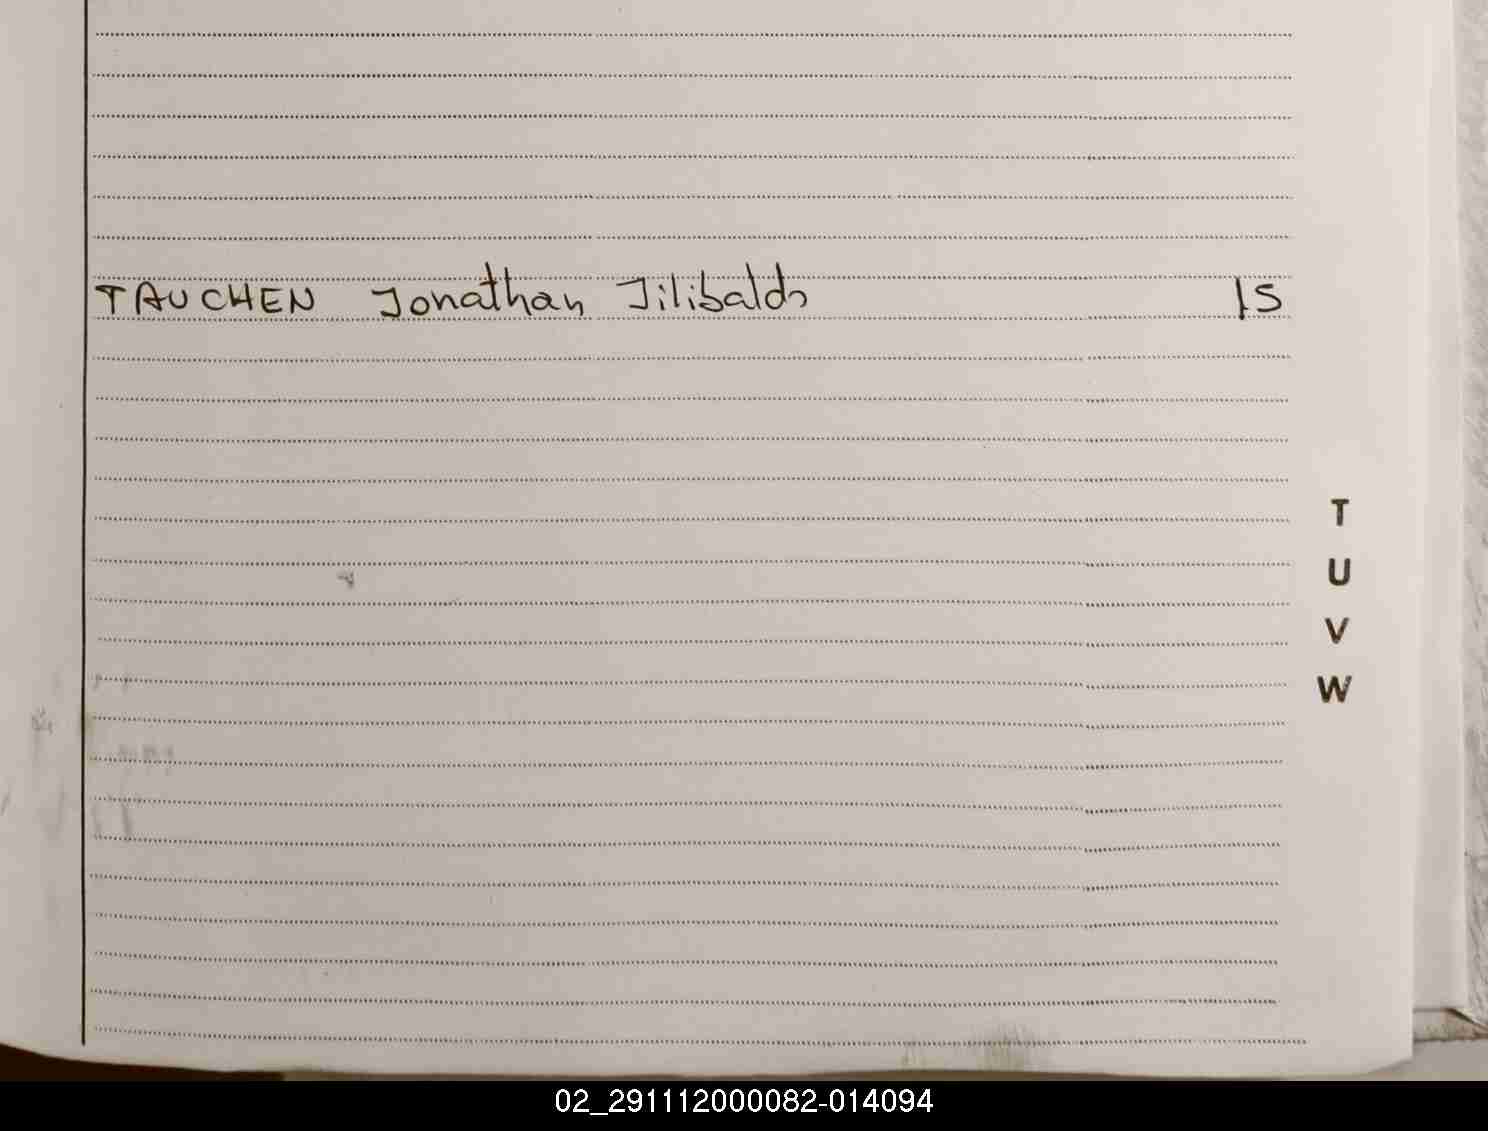 TAUCHEN Jonathan Jilibaldo 15
T
U
V
W
02_291112000082-014094